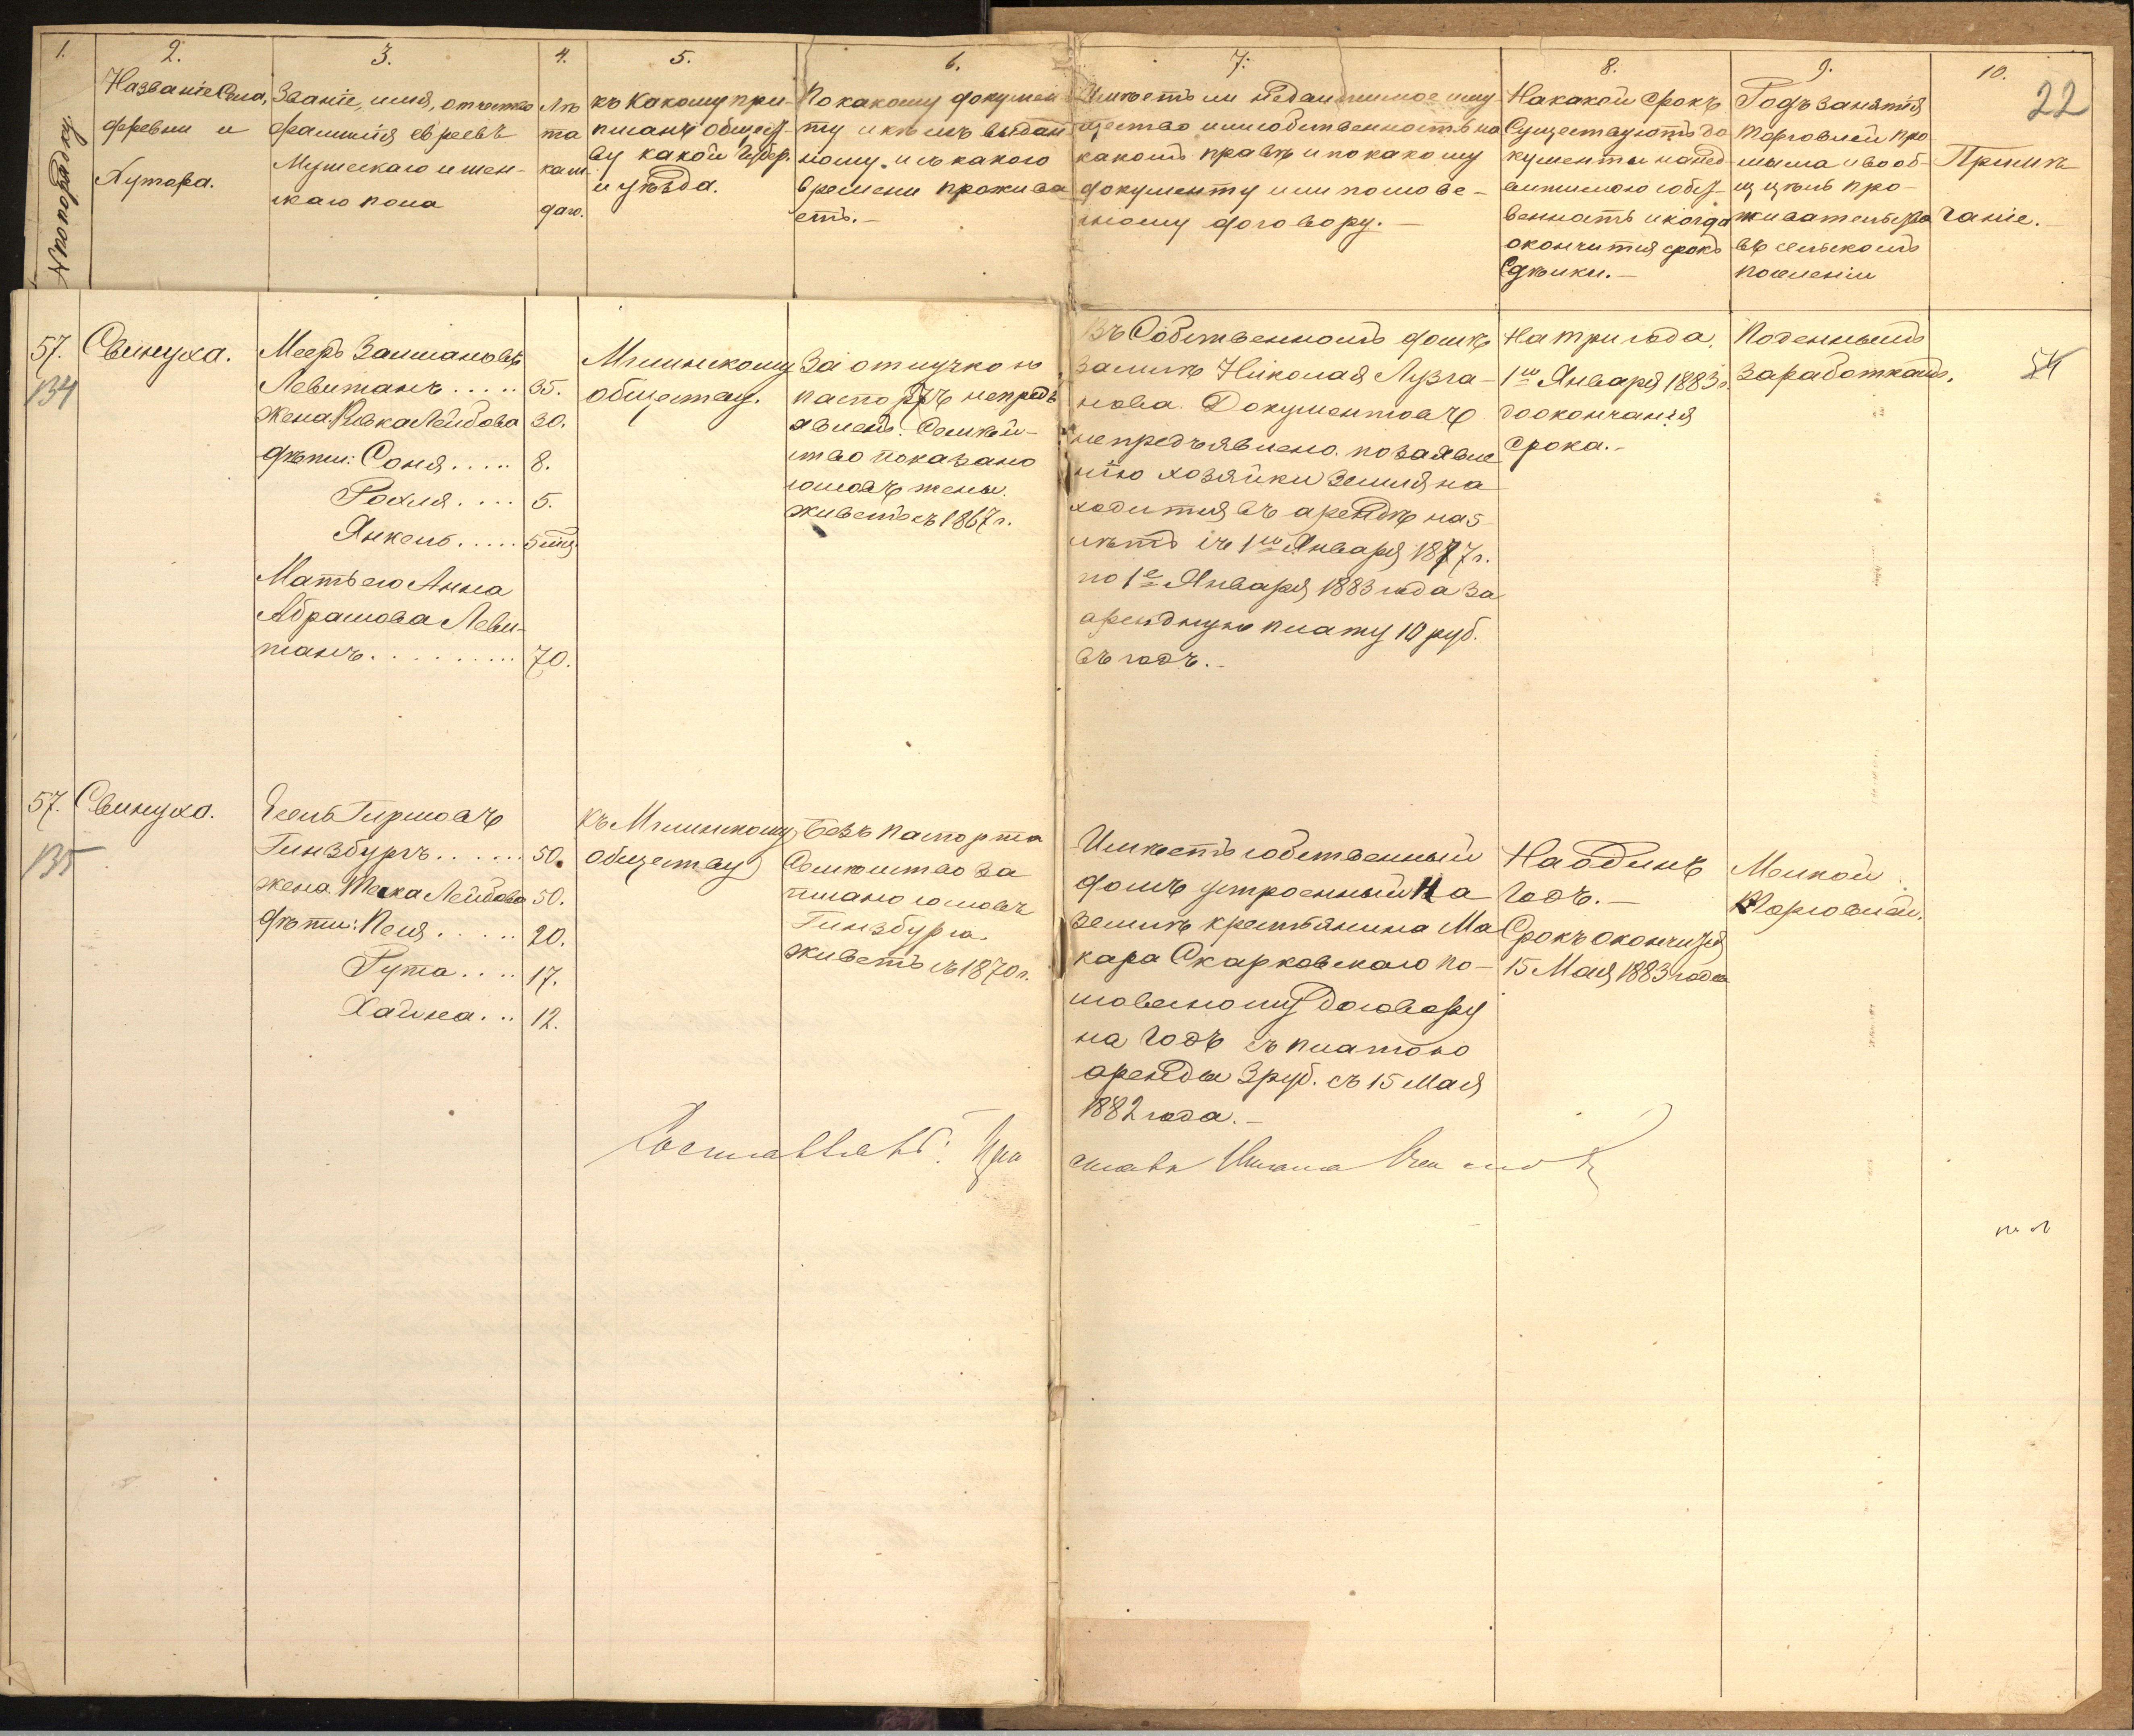 1.
2.
3.
4.
5.
6.
7.
8.
9.
10.
22
№ по порядку
Названіе Села,
деревни и
Хутора.
Званіе, имя, отчество
фамилія евреевъ
Мужескаго и жен-
скаго пола
Лѣ
та
каж
даго.
къ Какому при-
писанъ общест-
ву какой Губер.
и уѣзда.
По какому докумен
ту и кѣмъ выдан
ному и съ какого
времени прожива
етъ.-
Имѣетъ ли недвижимое иму
щество или собственность на
какомъ правѣ и по какому
документу или по слове-
сному договору.-
На какой срокъ
Существуютъ до
кументы на нед-
вижимою собст-
венность и когда
окончится срокъ
Сдѣлки.-
Родъ занятія
торговлей про
мысла и вооб-
ще цѣль про-
живательства
въ сельскомъ
поселеніи
Примѣ
чаніе.
57.
134
Свинуха.
Мееръ Залмановъ
Левитанъ.....
35.
Жена Ривка Лейбова
30.
дѣти: Соня.....
8.
Рохля....
5.
Янкель.....
5 мѣс.
Мать его Анна
Абрамова Леви-
танъ..........
70.
Мглинскому
обществу.
За отлучкою
паспортъ непредъ
явленъ. Семѣй-
ство показано
сословъ жены.
живетъ съ 1867 г.
Въ Собственномъ домѣ
землѣ Николая Лузга-
нова. Документовъ
непредъявлено. по заявле
нію хозяйки земля на
ходится въ арендѣ на 5
лѣтъ съ 1го Января 1877 г.
по 1е Января 1883 года за
арендную плату 10 руб.
въ годъ.-
На три года.
1го Января 1883 г.
до окончанія
срока.-
Поденнымъ
заработкамъ.
54
57.
135
Свинуха.
Есель Гиршовъ
Гинзбургъ......
50.
жена Теска Лейбова
50.
дѣти: Песя.....
20.
Гута....
17.
Хайка...
12.
къ Мглинскому
обществу
Безъ паспорта
Семейство за
писано сословъ
Гинзбурга.
живетъ съ 1870 г.
Имѣетъ собственный
домъ устроенный на
землѣ крестьянина Ма
кара Скарковскаго по-
словесному договору
на годъ съ платою
аренды 3 руб. съ 15 Мая
1882 года.-
На одинъ
годъ.-
Срокъ окончится
15 Мая 1883 года
Мелкой
торговлей.
Составлялъ: При
става